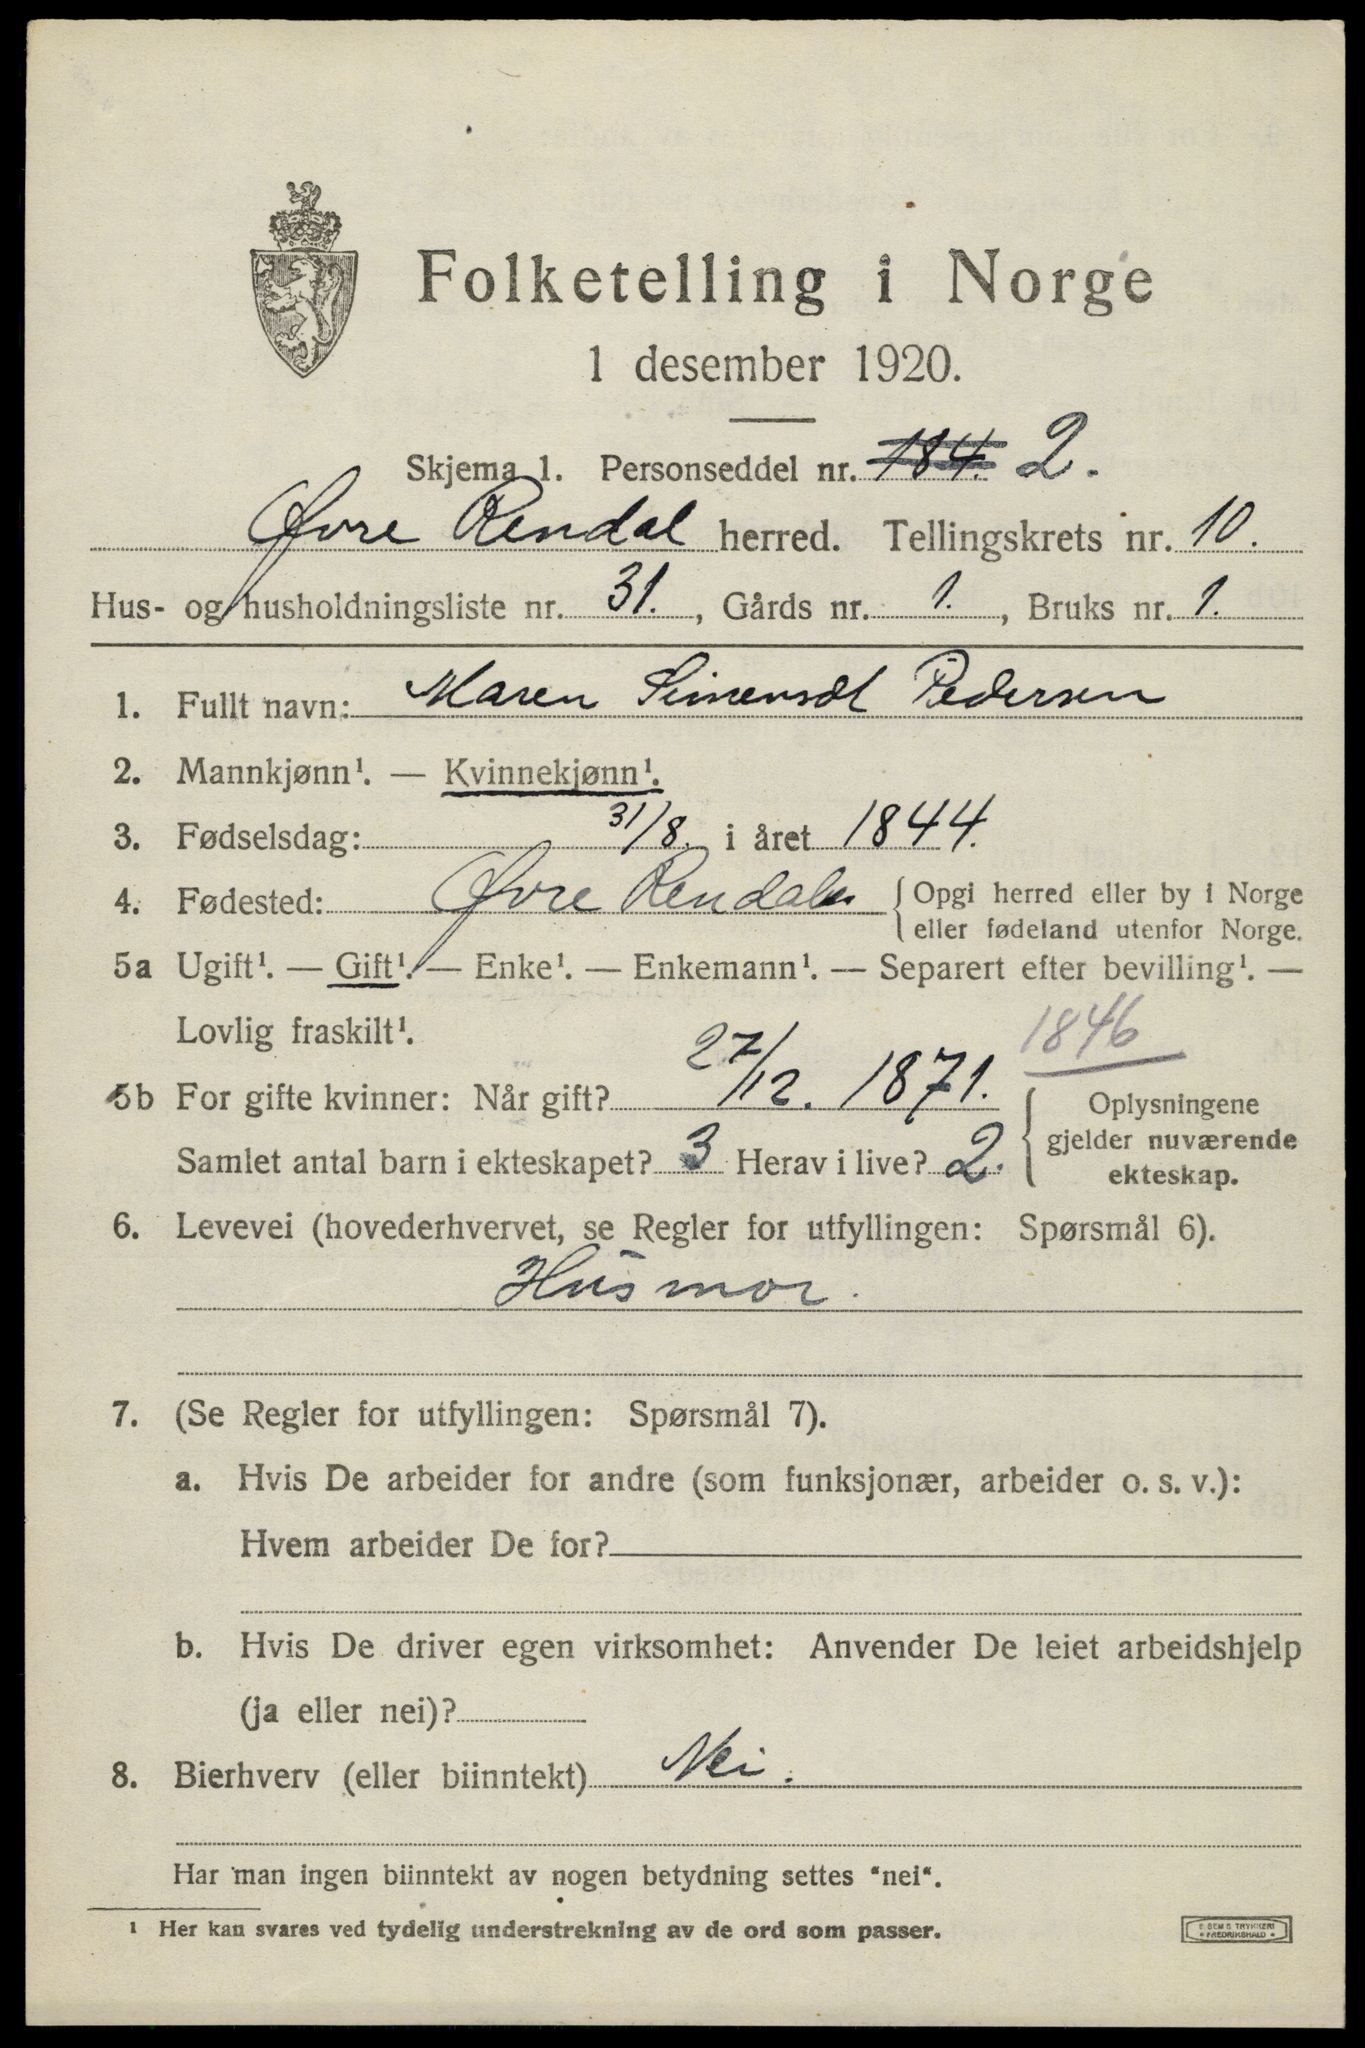 Folketelling i Norge
1 desember 1920.
Skjema 1. Personseddel nr. 184. 2.
Øvre Rendal herred. Tellingskrets nr. 10.
Hus- og husholdningsliste nr. 31., Gårds nr. 1., Bruks nr. 1.
1. Fullt navn: Maren Simensdt Pedersen
2. Mannkjønn¹. — Kvinnekjønn¹.
3. Fødselsdag: 31/8. i året 1844.
4. Fødested: Øvre Rendalen { Opgi herred eller by i Norge
eller fødeland utenfor Norge.
5a Ugift¹. — Gift¹. — Enke¹. — Enkemann¹. — Separert efter bevilling¹. —
Lovlig fraskilt¹.
1846
5b For gifte kvinner: Når gift? 27/12. 1871. { Oplysningene
gjelder nuværende
Samlet antal barn i ekteskapet? 3 Herav i live? 2.
ekteskap.
6. Levevei (hovederhvervet, se Regler for utfyllingen: Spørsmål 6).
Husmor.
7. (Se Regler for utfyllingen: Spørsmål 7).
a. Hvis De arbeider for andre (som funksjonær, arbeider o. s. v.):
Hvem arbeider De for?
b. Hvis De driver egen virksomhet: Anvender De leiet arbeidshjelp
(ja eller nei)?
8. Bierhverv (eller biinntekt) Nei.
Har man ingen biinntekt av nogen betydning settes "nei".
¹ Her kan svares ved tydelig understrekning av de ord som passer.
E. SEM'S TRYKKERI
* FREDRIKSHALD *